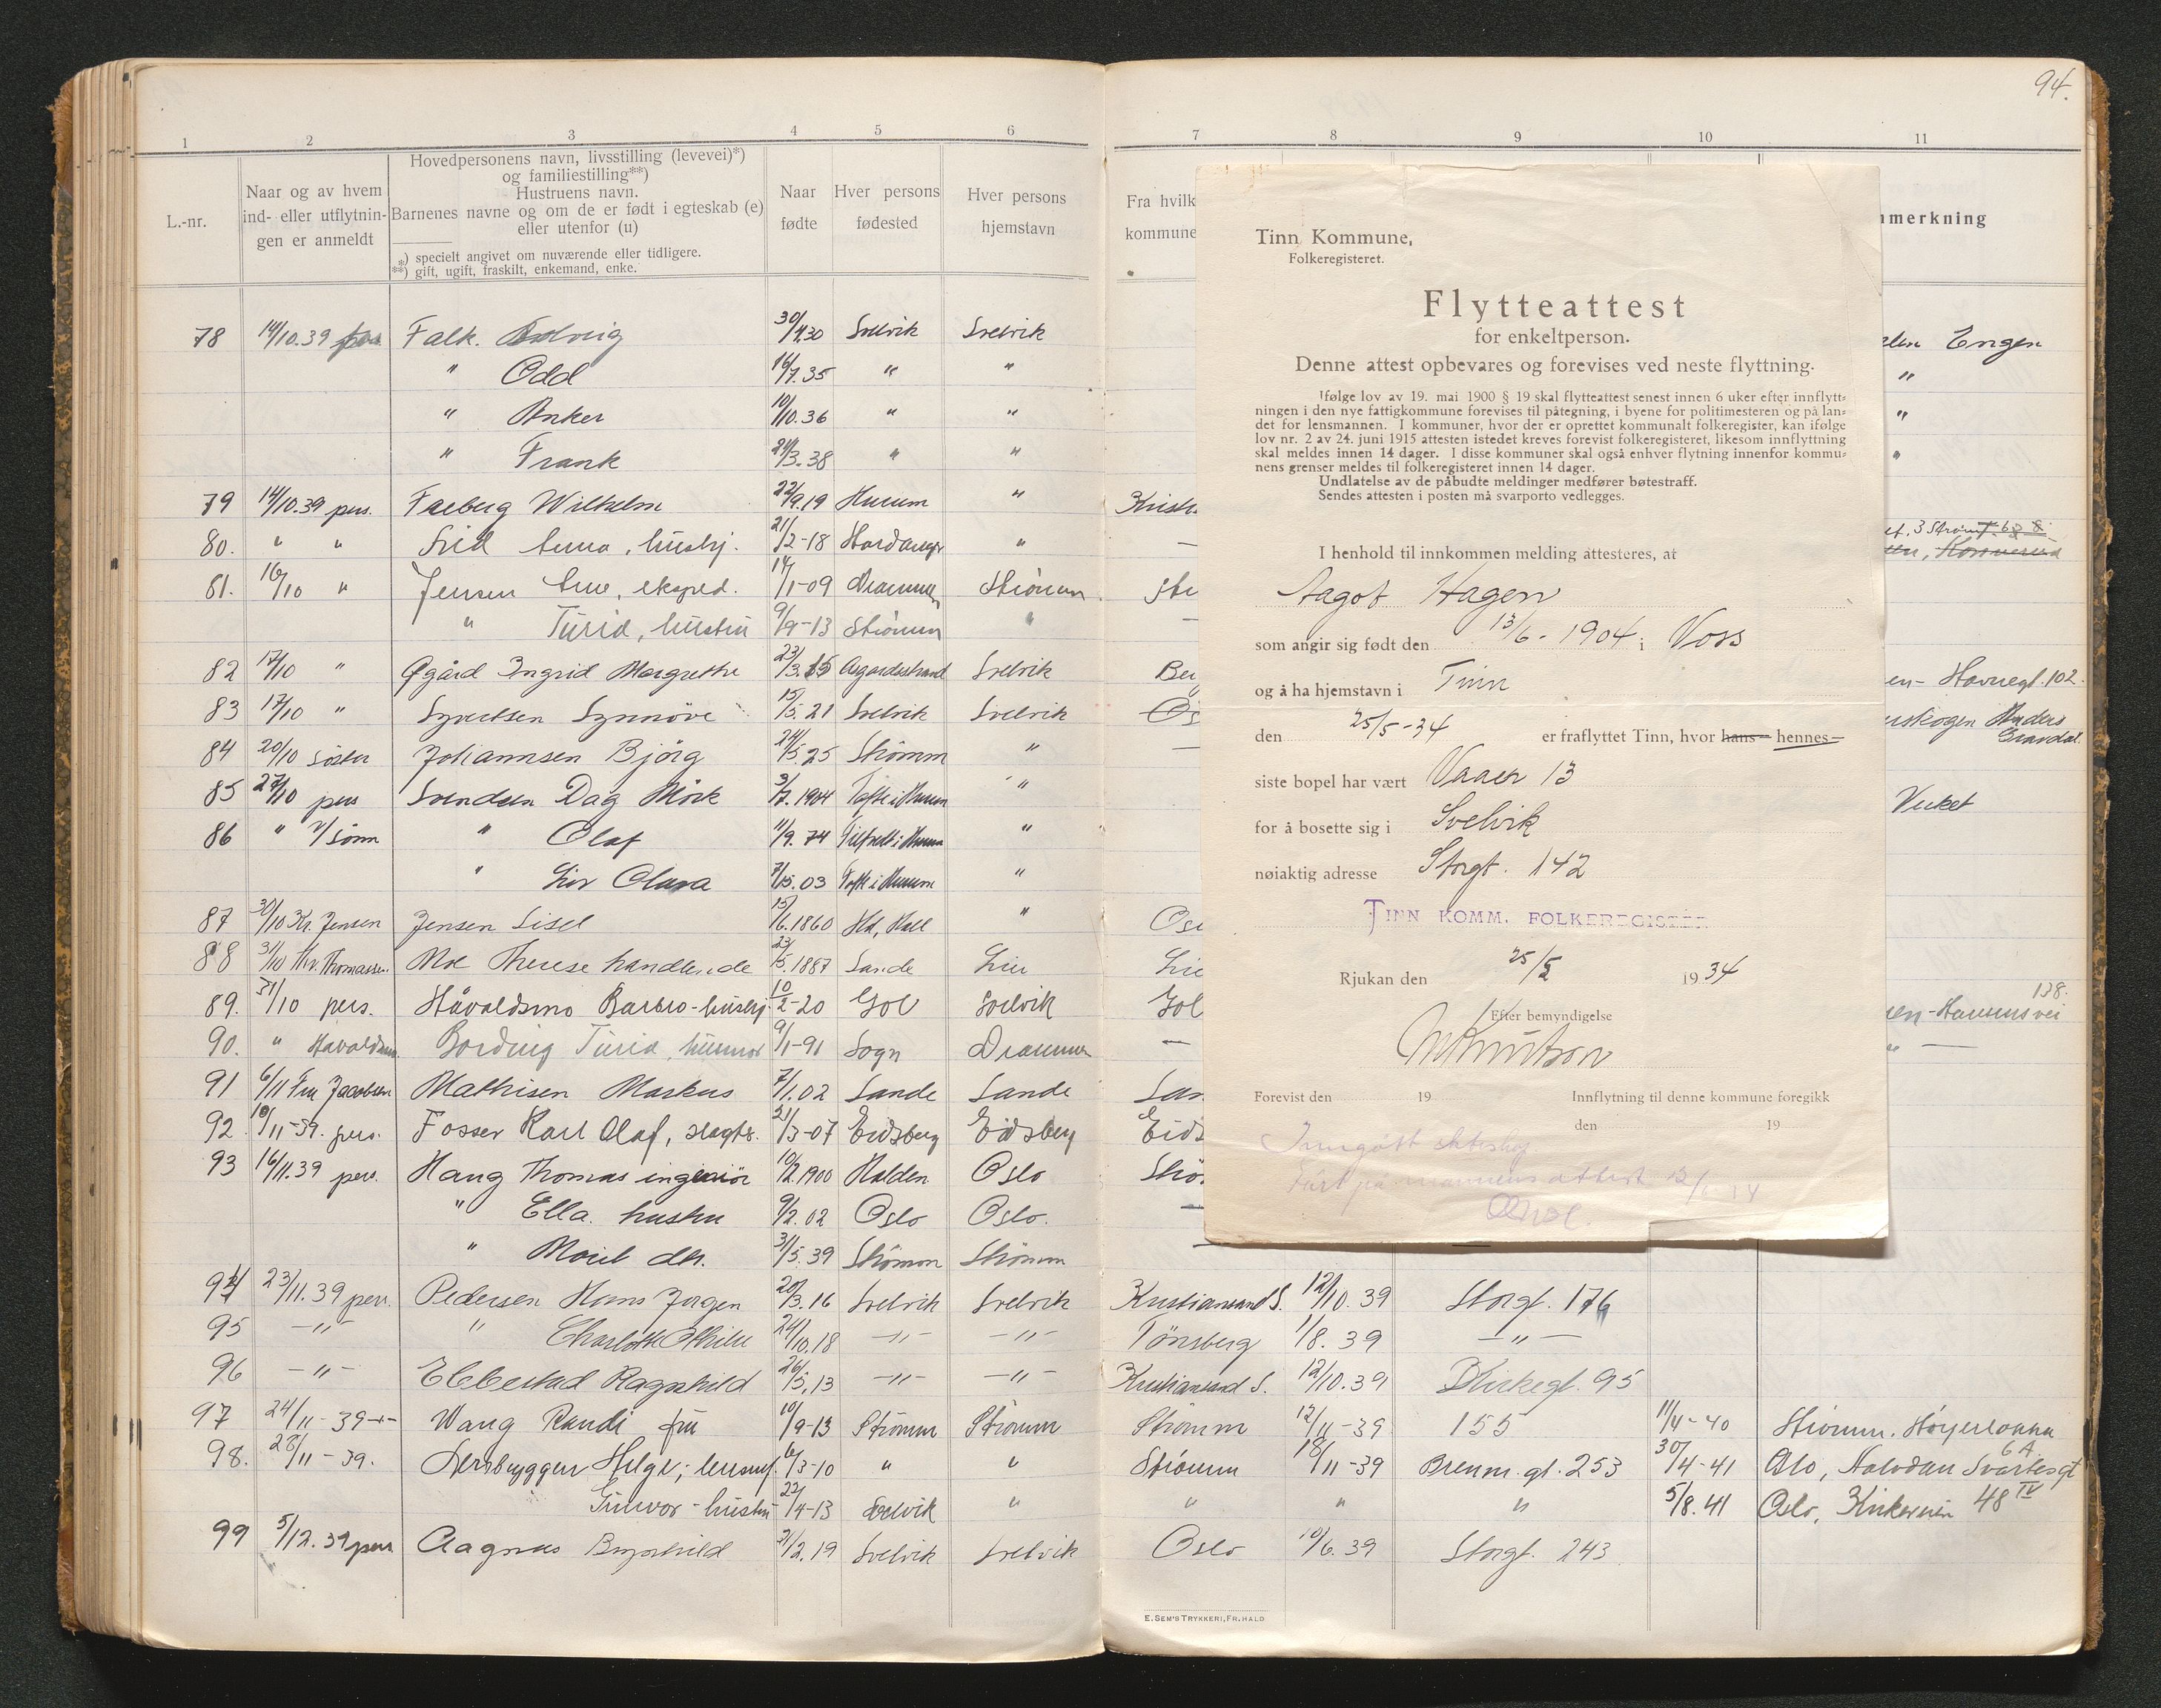 94.
1 2 3 4 5 6
L.-nr.
Naar og av hvem
ind- eller utflytnin-
gen er anmeldt
Hovedpersonens navn, livsstilling (levevei)*)
og familiestilling**)
Hustruens navn.
Barnenes navne og om de er født i egteskab (e)
eller utenfor (u)
*) specielt angivet om nuværende eller tidligere.
**) gift, ugift, fraskilt, enkemand, enke.
Naar
fødte
Hver persons
fødested
Hver persons
hjemstavn
78 14/10.39 Falk. 30/4.30 Svelvik Svelvik
" Odd 14/7.35 " "
" Anker 10/10.36 " "
" Frank 21/3.38 " "
79 14/10.39 pers. Faeberg Wilhelm 22/9.19 Hurum "
80. " " 21/2-18 Hardanger "
81. 16/10 " Jensen eksped. 14/1-09 Drammen Strömm
" Turid, hustru 9/9-13 Strömm "
82 17/10 " Øgård Ingrid Margrethe 23/3.15 Aasgaardsstrand Svelvik
83 17/10 " Syvertsen Synnöve 15/5.21 Svelvik Svelvik
84 20/10 söster Johannsen Björg 24/5.25 Strömm "
85 27/10 pers Svendsen Dag Mörk 3/7.1904 Tofte i Hurum "
86 " v/sönn " Olaf 11/9.74 "
" Liv Clara 7/5.03 Tofte i Hurum "
87 30/10 Kr. Jensen Jensen Sisel 15/6.1860 "
88 31/10 Thv. Thomassen. Moe Therese handlende 23/5.1887 Sande Lier
89. 31/10 pers. Håvaldsmo Barbro - hushj. 10/2-20 Gol Svelvik
90. " Havaldsmo Bording Turid, husmor 9/1-91 Sogn Drammen
91 6/11 Fru Jacobsen Mathisen Markus 7/1.02 Sande Sande
92. 10/11-39. pers. Fosser Karl Olaf, slagter. 21/3-07 Eidsberg Eidsberg
93 16/11.39 pers. Haug Thomas ingeniör 10/2.1900 Halden Oslo
" Ella. hustru 9/2.02 Oslo Oslo.
" dtr. 31/5.39 Strömm Strömm
94 23/11.39 pers. Pedersen Hans Jorgen 20/3.16 Svelvik Svelvik
95 -"- " Charlotte 24/10.18 -"- -"-
96 -"- Ebbestad Ragnhild 26/5.13 -"- -"-
97 24/11-39 Wang Randi fru 10/9-13 Strömm Strömm
98. 28/11-39. Helge; 6/3-10 " "
Gunvor - hustru 22/4-13 Svelvik "
99 5/12.39 pers Aagnæs Brynhild 2/2.19 Svelvik Svelvik
7 8 9 10 11
Fra hvilk
kommune
nmerkning
Engen
"
"
"
Krist
Ber
Os
Havnegt. 102.
skogen Anders
Gravdal.
Viket
Gol
138.
Tinn Kommune,
Folkeregisteret.
Flytteattest
for enkeltperson.
Denne attest opbevares og forevises ved neste flyttning.
Ifølge lov av 19. mai 1900 § 19 skal flytteattest senest innen 6 uker efter innflytt-
ningen i den nye fattigkommune forevises til påtegning, i byene for politimesteren og på lan-
det for lensmannen. I kommuner, hvor der er oprettet kommunalt folkeregister, kan ifølge
lov nr. 2 av 24. juni 1915 attesten istedet kreves forevist folkeregisteret, likesom innflyttning
skal meldes innen 14 dager. I disse kommuner skal også enhver flytning innenfor kommu-
nens grenser meldes til folkeregisteret innen 14 dager.
Undlatelse av de påbudte meldinger medfører bøtestraff.
Sendes attesten i posten må svarporto vedlegges.
I henhold til innkommen melding attesteres, at
Aagot Hagen
som angir sig født den 13/6 - 1904 i Voss
og å ha hjemstavn i Tinn
den 25/5-34 er fraflyttet Tinn, hvor hans- hennes-
siste bopel har vært Vaaer 13
for å bosette sig i Svelvik
nøiaktig adresse Storgt. 142
TINN KOMM. FOLKEREGISTER
Rjukan den 25/5 1934
Efter bemyndigelse
Forevist den 19
Innflytning til denne kommune foregikk
den 19
Inngått ekteskap
Ført på mannens attest
Kristiansand S. 12/10.39 Storgt. 176
Tönsberg 1/8.39 -"-
Kristiansand S. 12/10.39 Kirkegt. 95
Strömm 12/11-39 155 11/4-40 Strömm.
Strömm 18/11-39 Brenn. gt. 253 30/4-41 Oslo, Halvdan Svartesgt 6A.
" " " 5/8.41 Oslo, Kirkeveien 48 IV
Oslo 10/6.39 Storgt. 243
E. SEM'S TRYKKERI, FR.HALD